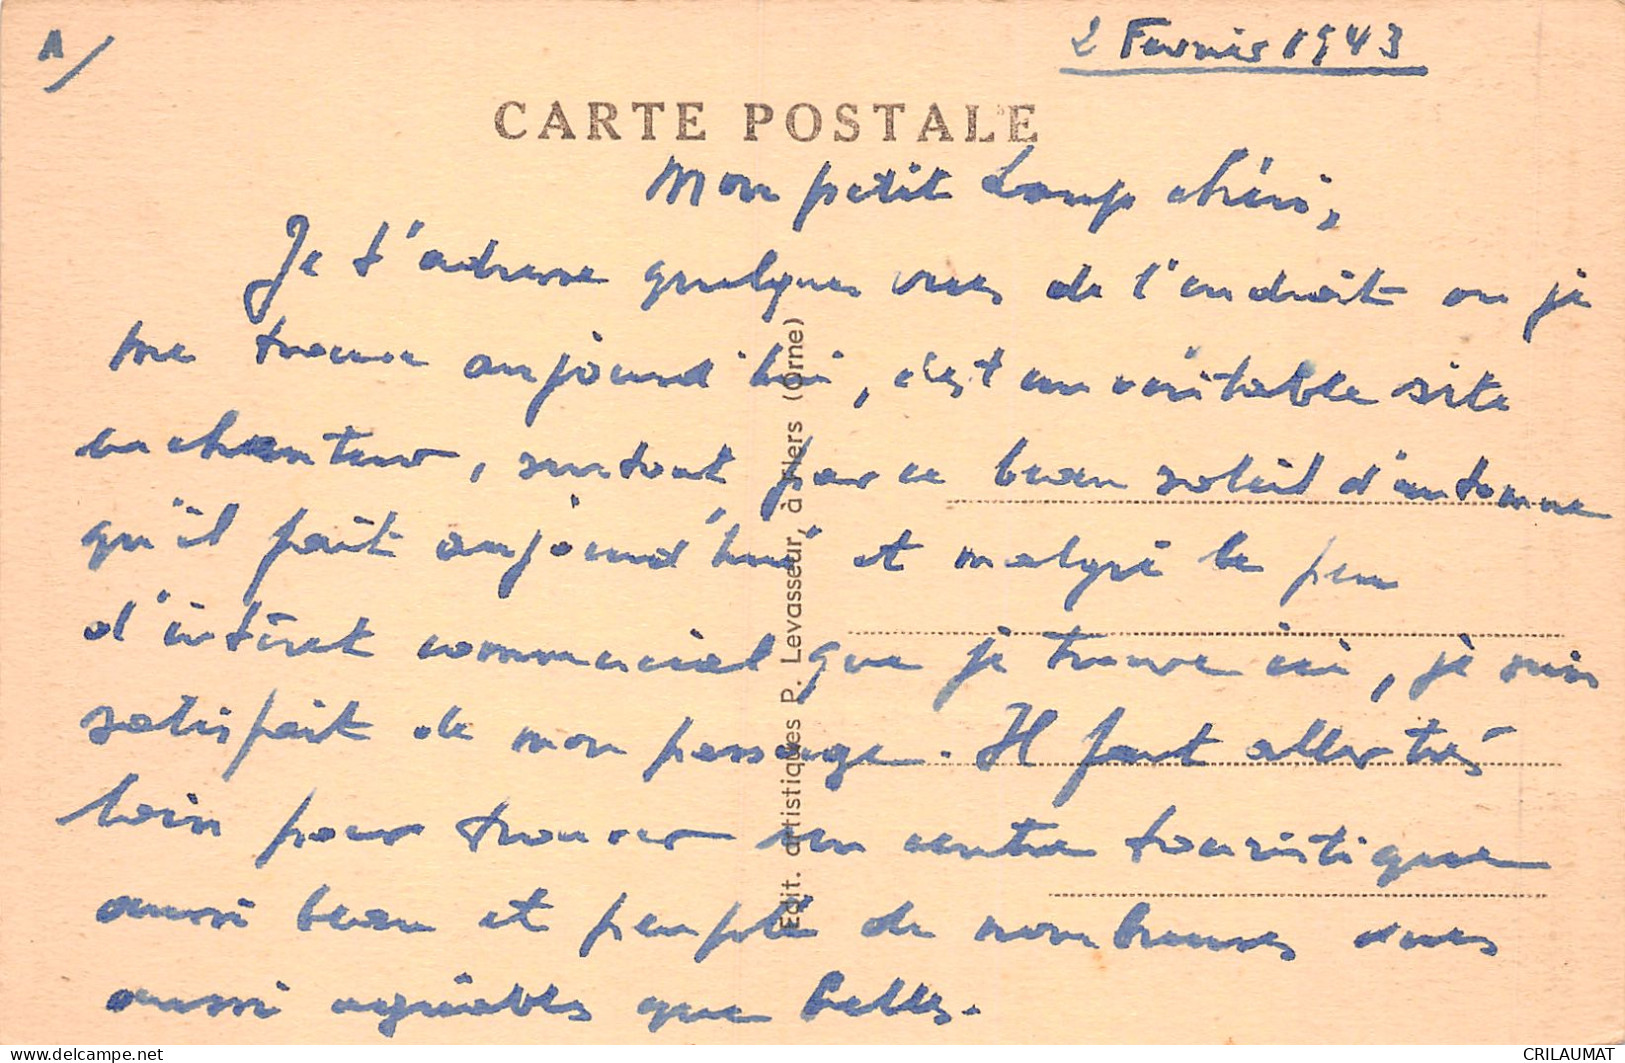 1/
2 Fevrier 1943
CARTE POSTALE
Mon petit Loup chéri,
Je t'adresse quelques vues de l'endroit ou je
me trouve aujourd'hui, c'est un véritable site
enchanteur, surtout par ce beau soleil d'automne
qu'il fait aujourd'hui et malgré le peu
d'intéret commercial que je trouve ici, je suis
satisfait de mon passage. Il faut aller très
loin pour trouver un centre touristique
aussi beau et peuplé de nombreuses vues
aussi agréables que belles.
Edit. artistiques P. Levasseur, à Flers (Orne)
CRILAUMAT